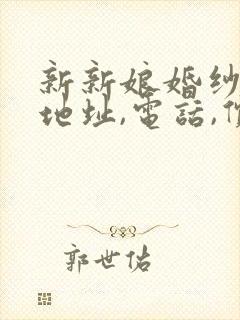 新新娘婚紗
地址,電話,價
郭世佑